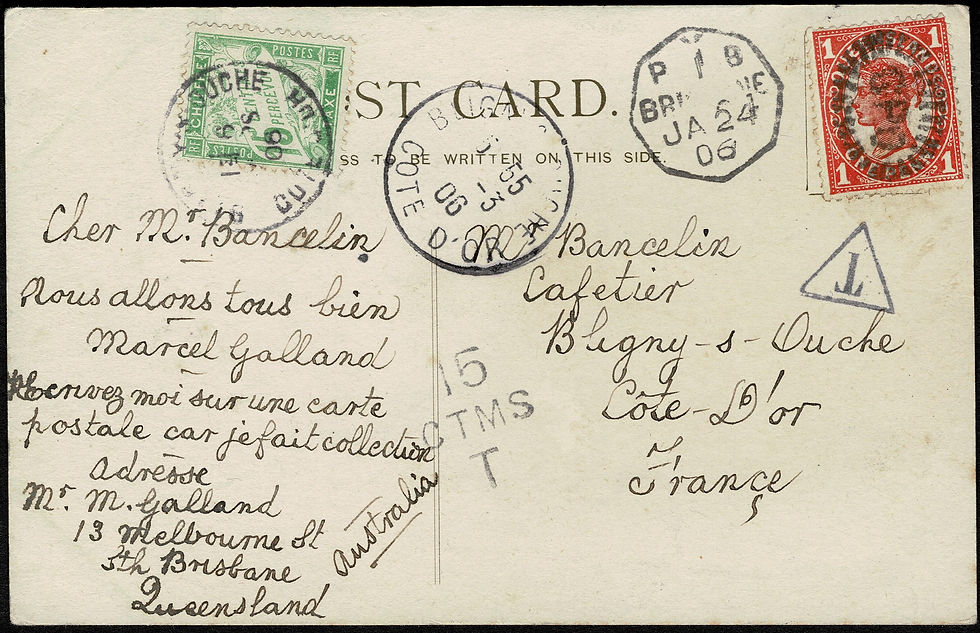 POST CARD.
SS TO BE WRITTEN ON THIS SIDE.
POSTES
RF
CHIFFRE TAXE
POSTES
RF
OUCHE
06
COTE D'OR
55
-3
06
P 1 B
JA 24
06
1 1
1 1
T
15
CTMS
T
Cher Mr. Bancelin
Nous allons tous bien
Marcel Galland
Ecrivez moi sur une carte
postale car je fait collection
adresse
Mr. M. Galland
13 Melbourne St
Sth Brisbane
Queensland
Australia
Mr Bancelin
Cafetier
Bligny-s-Ouche
Côte-D'or
France